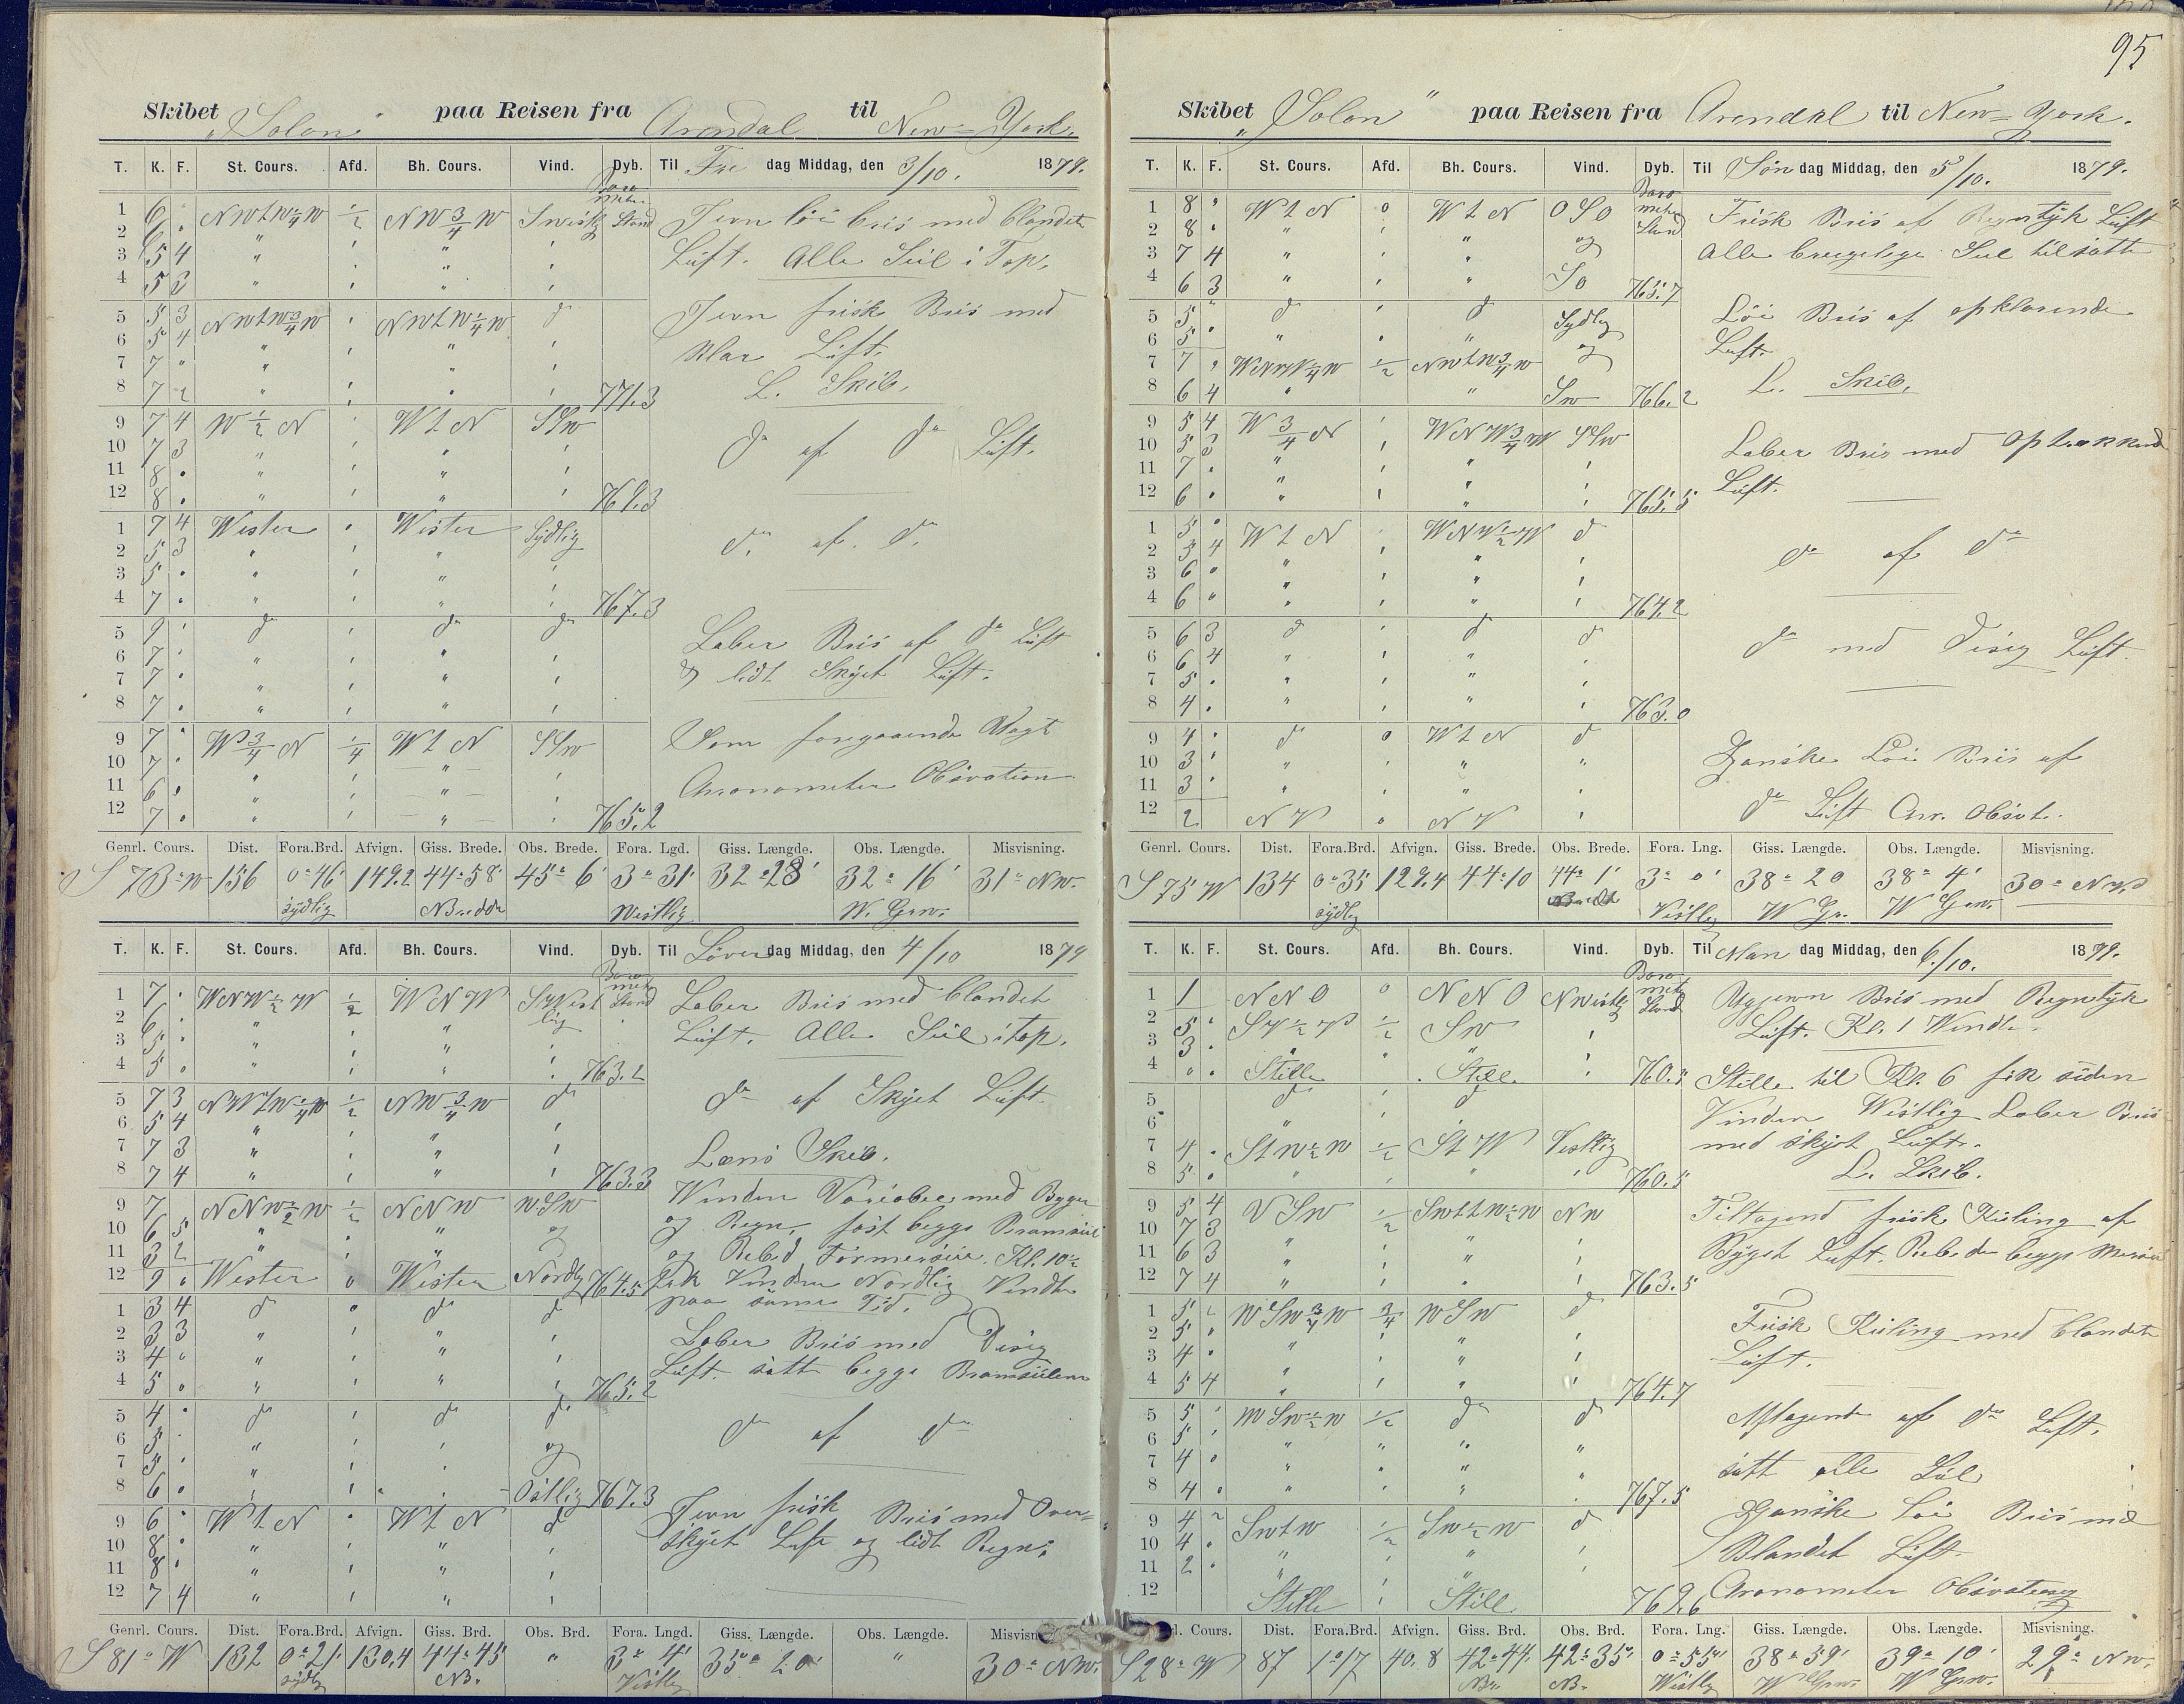 95
Skibet "Solon" paa Reisen fra Arendal til New=York.
T. K. F. St. Cours. Afd. Bh. Cours. Vind. Dyb. Til Fre dag Middag, den 3/10. 1879.
Baro
meter
Stand
1 6 . NWtW 1/4 W 1/2 NW 3/4 W Swestlg Jevn löi bris med blandet
2 6 . " " "
3 5 4 " " " Luft. Alle Seil i Top.
4 5 3 " " "
5 5 3 NWtW 3/4 W " NWtW 1/4 W do Jevn frisk Bris med
6 5 4 " " "
7 7 " " " " Klar Luft.
8 7 2 " " " 771.3 L. Skib.
9 7 4 W 1/2 N " WtN SSW
10 7 3 " " " do af do Luft.
11 8 . " " "
12 8 . " " " 769.3
1 7 4 Wester " Wester Sydlig
2 5 3 " " " do. af. do.
3 5 . " " "
4 7 . " " " 767.3
5 7 . do " do do Laber Bris af do Luft
6 7 . " " "
7 7 . " " " & lidt Skyet Luft.
8 7 . " " "
9 7 . W 3/4 N 1/4 WtN SSW Som foregaaende Vagt
10 7 . " " "
11 6 . " " " Cronometer Obsvation
12 7 . " " " 765.2
Genrl. Cours. Dist. Fora.Brd. Afvign. Giss. Brede. Obs. Brede. Fora. Lgd. Giss. Længde. Obs. Længde. Misvisning.
S 73° W 156 0° 46' 149.2 44° 58' 45° 6' 3° 31' 32° 28' 32° 16' 31° NW.
sydlig N Bredde Westlig W. Grw.
T. K. F. St. Cours. Afd. Bh. Cours. Vind. Dyb. Til Löver dag Middag, den 4/10 1879
Baro
met
Stand
1 7 . WNW 1/2 W 1/2 WNW SWest lig Laber Bris med blandet
2 6 . " " "
3 5 . " " " Luft. Alle Seil i top.
4 5 . " " " 763.2
5 7 3 NWtW 1/4 W 1/2 NW 3/4 W do do af Skyet Luft.
6 5 4 " " "
7 7 3 " " " Lens Skib.
8 7 4 " " " 763.3
9 7 NNW 1/2 W 1/2 NNW WSW Winden Variabel med Byger
10 6 5 " " " og og Regn, fast begge Bramseil
11 3 2 " " " og Rebed Formerseil. Kl. 10 1/2
12 9 . Wester 0 Wester Nordlg 764.5 Fik Vinden Nordlig Vendte
1 3 4 do " do do paa samme Tid.
2 3 3 " " " Laber Bris med Disig
3 4 . " " "
4 5 . " " " 765.2 Luft. satt begge Bramseilene
5 4 . do " do do do af do
6 5 . " " " og
7 5 . " " "
8 6 . " " " Östlig 767.3
9 6 . WtN " WtN do Jevn frisk Bris med Over=
10 8 . " " " skyet Luft og lidt Regn.
11 8 . " " "
12 7 4 " " "
Genrl. Cours. Dist. Fora.Brd. Afvign. Giss. Brd. Obs. Brd. Fora. Lngd. Giss. Længde. Obs. Længde. Misvisn
S 81° W 132 0° 21' 130.4 44° 45' " 3° 4' 35° 20' " 30° NW.
sydlig NB. Vestlig
Skibet "Solon" paa Reisen fra Arendal til New=York.
T. K. F. St. Cours. Afd. Bh. Cours. Vind. Dyb. Til Sön dag Middag, den 5/10. 1879.
Baro
meter
Stand
1 8 " WtN 0 WtN OSO Frisk Bris af Regntyk Luft
2 8 . " " " og
3 7 4 " " " Alle bruegelige Seil tilsatte
4 6 3 " " " SO 765.7
5 5 " do " do Sydlig Löi Bris af opklarende
6 5 . " " " og Luft.
7 7 . WNW 1/4 W 1/2 NWtW 3/4 W
8 6 4 " " " SW 766.2 L. Skib.
9 5 4 W 3/4 N " WNW 3/4 W SSW
10 5 3 " " " Laber Bris med Optrækkend
11 7 . " " "
12 6 . " " " 765.5 Luft.
1 5 . WtN " WNW 1/2 W do
2 5 4 " " " do af do
3 6 . " " "
4 6 " " " " 764.2
5 6 3 do " do do do med Disig Luft.
6 6 4 " " "
7 5 . " " "
8 4 . " " " 763.0
9 4 . do 0 WtN do
10 3 . " " " Ganske Löi Bris af
11 3 . " " "
12 2 NW 0 NW " do Luft Crr. Obsvt.
Genrl. Cours. Dist. Fora.Brd. Afvign. Giss. Brede. Obs. Brede. Fora. Lng. Giss. Længde. Obs. Længde. Misvisning.
S 75 W 134 0° 35' 129.4 44° 10 44° 1' 3° 0' 38° 20 38° 4' 30° NW
sydlig Bredde Vestlig W Gr. W Grw.
T. K. F. St. Cours. Afd. Bh. Cours. Vind. Dyb. Til Man dag Middag, den 6/10. 1879.
Baro
met
Stand
1 1 NNO 0 NNO NWestlg Ugjevn Bris med Regntyk
2 5 . SW 1/2 W 1/2 SW " Luft. Kl. 1 Vendte.
3 3 . " " "
4 . . Stille " Stille " 760.5 Stille til Kl. 6 fik siden
5 do " do Vinden Westlig Laber Bris
6 " "
7 4 . StW 1/2 W 1/2 StW Vestlig med skyet Luft.
8 5 . " " " 760.5 L. Skib.
9 5 4 VSW 1/2 SWttW 1/2 W NW Tiltagend frisk Kuling af
10 7 3 " " "
11 6 3 " " " Byget Luft. Rebede begge Merseil
12 7 4 " " " 763.5
1 5 2 WSW 3/4 W 3/4 WSW do
2 5 . " " " Frisk Kuling med blandet
3 4 . " " " Luft.
4 5 4 " " " 764.7
5 5 ' WSW 1/2 W 1/2 do do Aftagende af do Luft,
6 5 . " " "
7 4 . " " " satt alle Seil
8 4 . " " " 767.5
9 4 2 SWtW 1/2 SW 1/2 W do Ganske Löi Bris med
10 4 . " " " Blandet Luft.
11 2 . " " "
12 Stille " Stille 769.6 Cronometer Obsvation
l. Cours. Dist. Fora.Brd. Afvign. Giss. Brd. Obs. Brd. Fora. Lng. Giss. Længde. Obs. Længde. Misvisning.
S 28° W 87 1° 17 40.8 42° 44' 42° 35' 0° 55' 38° 59' 39° 10' 29° NW.
NBr NB. Westlig W Grw. W Grw.